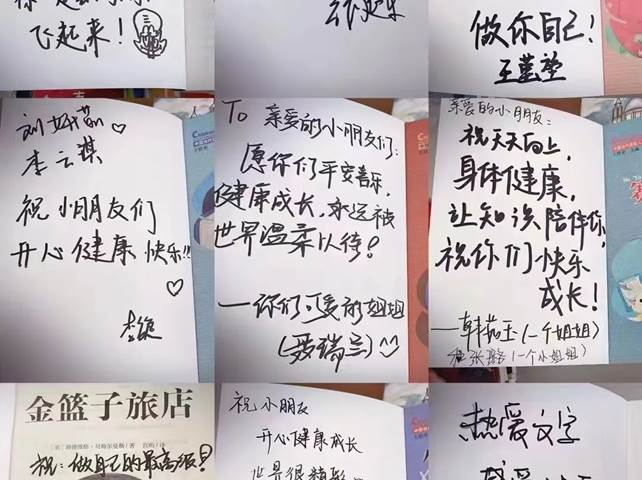 飞起来!
做你自己!
李云祺
祝小朋友们
开心健康快乐!!
To 亲爱的小朋友们:
愿你们平安喜乐,
健康成长,永远被
世界温柔以待!
——你们可爱的姐姐
亲爱的小朋友:
祝天天向上,
身体健康,
让知识陪伴你,
祝你们快乐
成长!
——韩茹玉(一个姐姐)
(一个小姐姐)
金篮子旅店
祝:做自己的最高级!
祝小朋友
开心健康成长
世界很精彩
热爱文字